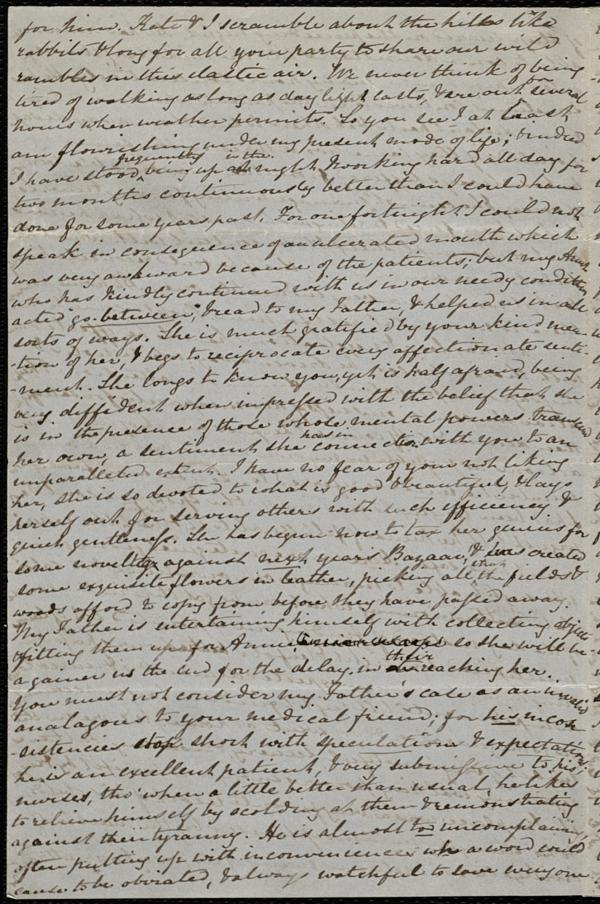 for him. Kate & I scramble about the hills like
rabbits & long for all your party to share our wild
rambles in this elastic air. We never think of being
tired of walking as long as daylight lasts, & are out for several
hours when weather permits. So you see I at least
am flourishing under my present mode of life; & indeed
I have stood frequently being up in the night & working hard all day for
two months continuously better than I could have
done for some years past. For one fortnight I could not
speak in consequence of an ulcerated mouth which
was very awkward because of the patients; but my Aunt
who has kindly continued with us in our needy condition
acted go-between, & read to my Father, & helped us in all
sorts of ways. She is much gratified by your kind men-
-tion of her, & begs to reciprocate every affectionate senti-
-ment. She longs to know you, yet is half afraid, being
very diffident when impressed with the belief that she
is in the presence of those whose mental powers transcend
her own, a sentiment she has in connection with you to an
unparalleled extent. I have no fear of your not liking
her, she is so devoted to what is good & beautiful, & lays
herself out for serving others with such efficiency &
quiet gentleness. She has begun now to tax her genius for
some novelties against next year's Bazaar, & has created
some exquisite flowers in leather, picking all the fields &
woods afford to copy from before they have passed away.
My Father is entertaining himself with collecting objects
& fitting them up for Anne so she will be
a gainer in the end for the delay in their reaching her.
You must not consider my Father's case as an
analagous to your medical friend; for his incon-
-sistencies stop short with speculations & expectations;
he is an excellent patient, & very submissive to his
nurses, tho' when a little better than usual, he likes
to relieve himself by scolding at them & remonstrating
against their tyranny. He is almost too uncomplaining,
often putting up with inconveniences wh a word could
cause to be obviated, & always watchful to save every one